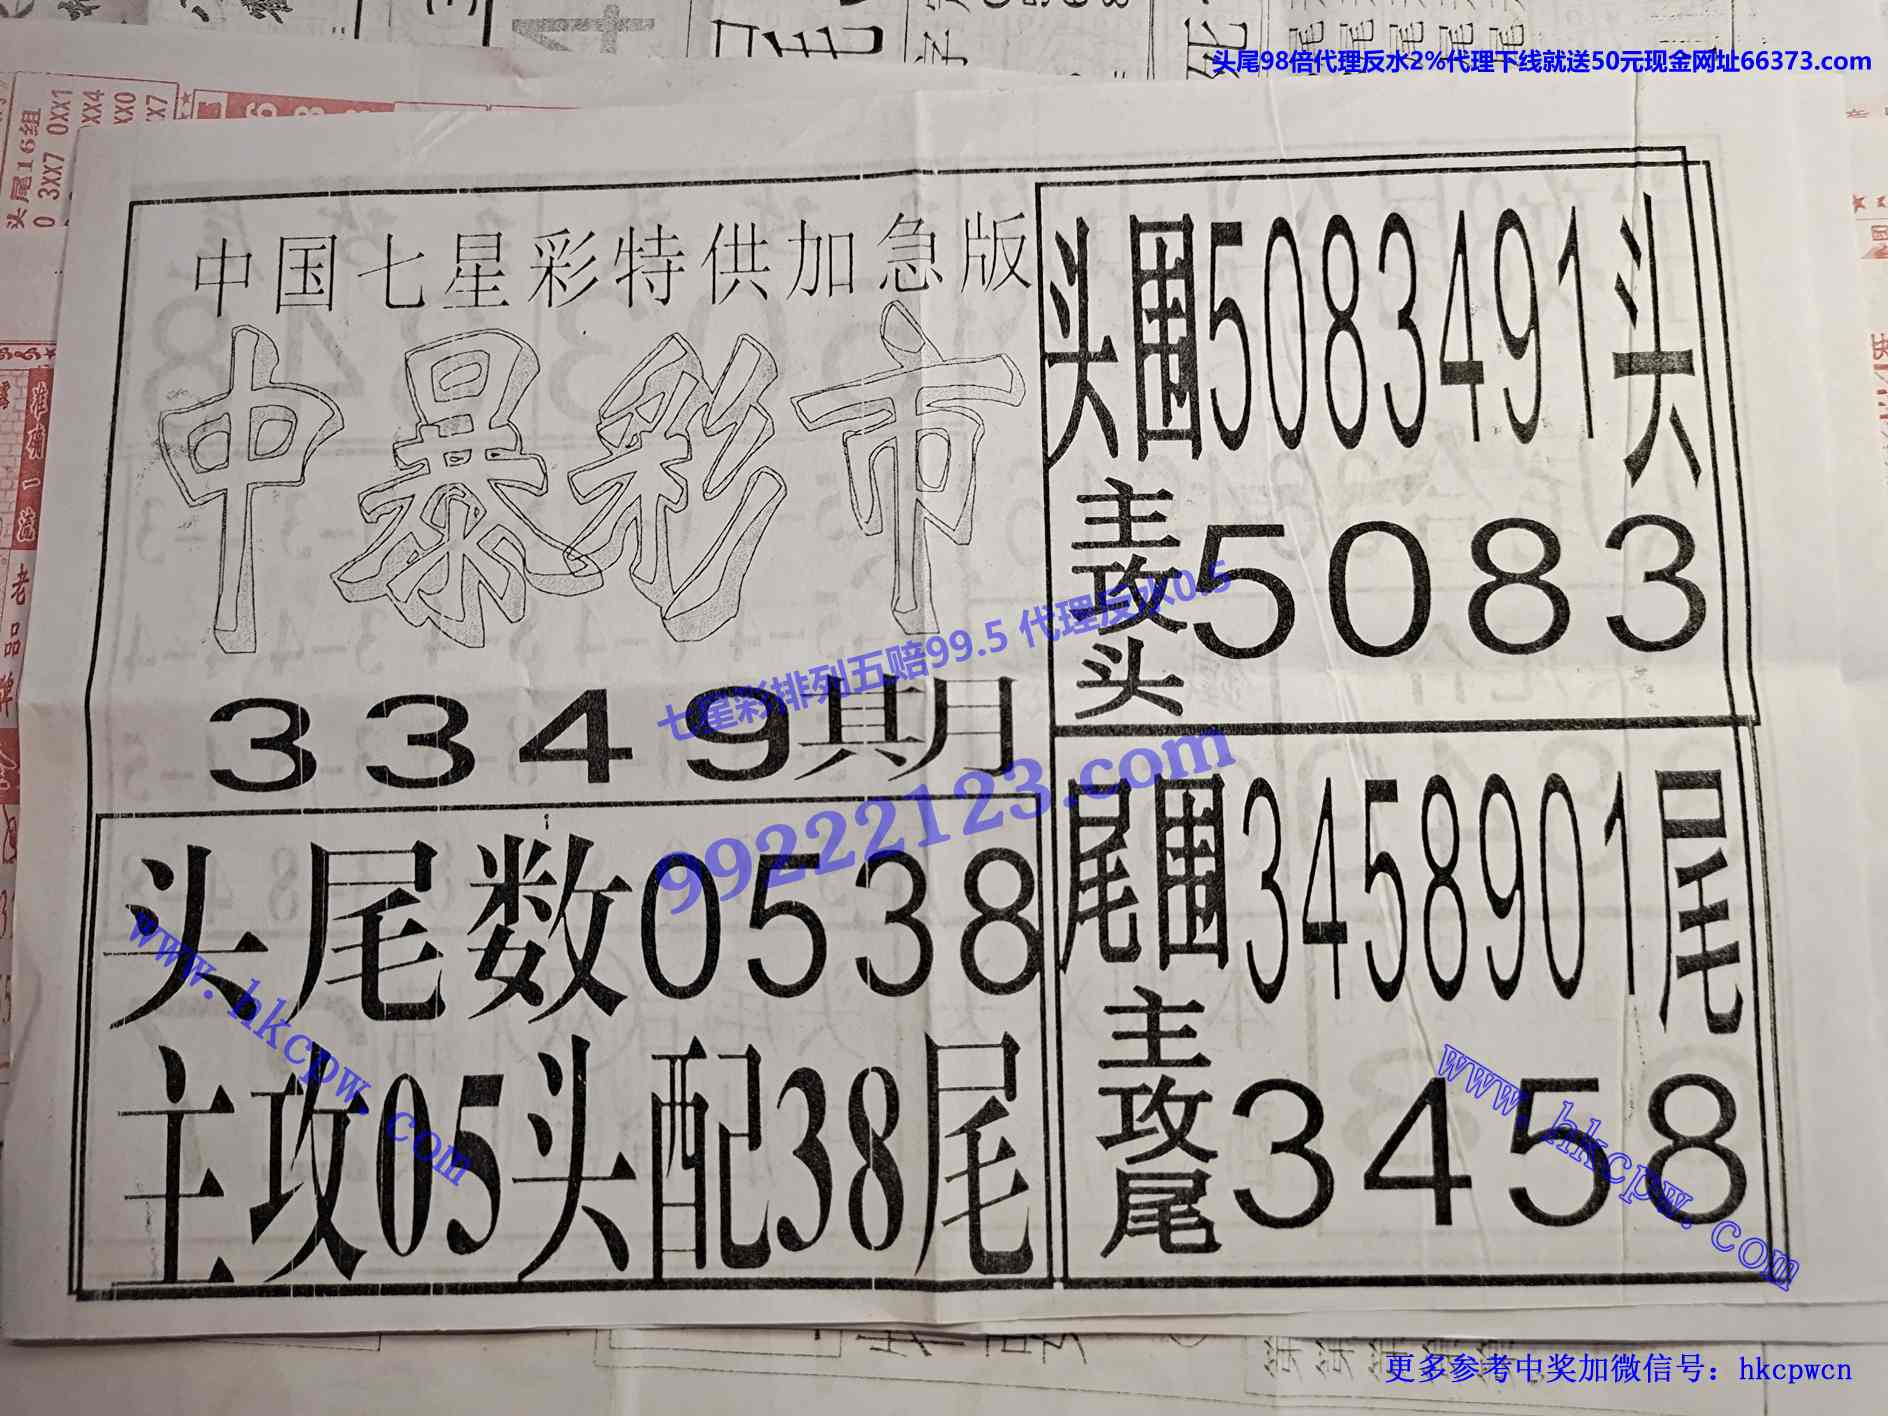 头尾98倍代理反水2%代理下线就送50元现金网址66373.com
头尾16组
0 3XX7 0XX1
中国七星彩特供加急版
中暴彩市
3349期
头围5083491头
主攻头5083
七星彩排列五赔99.5 代理反水0.5
99222123.com
头尾数0538
主攻05头配38尾
尾围3458901尾
主攻尾3458
www.hkcpw.com
www.hkcpw.com
更多参考中奖加微信号：hkcpwcn